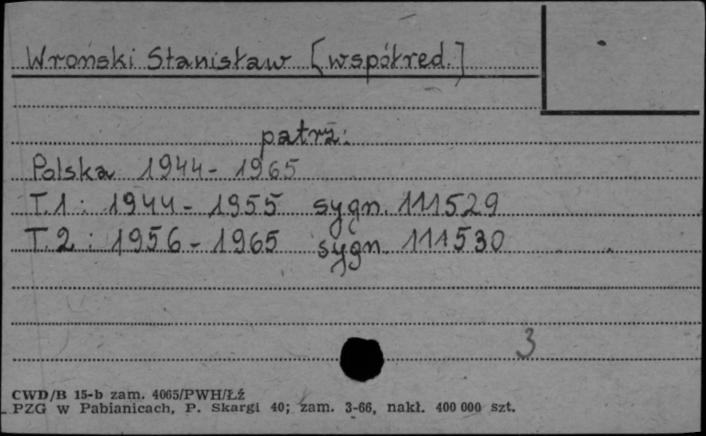 Wroński Stanisław [współred.]
patrz:
Polska 1944-1965
T.1: 1944-1955 sygn. 111529
T.2: 1956-1965 sygn. 111530
3
CWD/B 15-b zam. 4065/PWH/Łź
PZG w Pabianicach, P. Skargi 40; zam. 3-66, nakł. 400 000 szt.